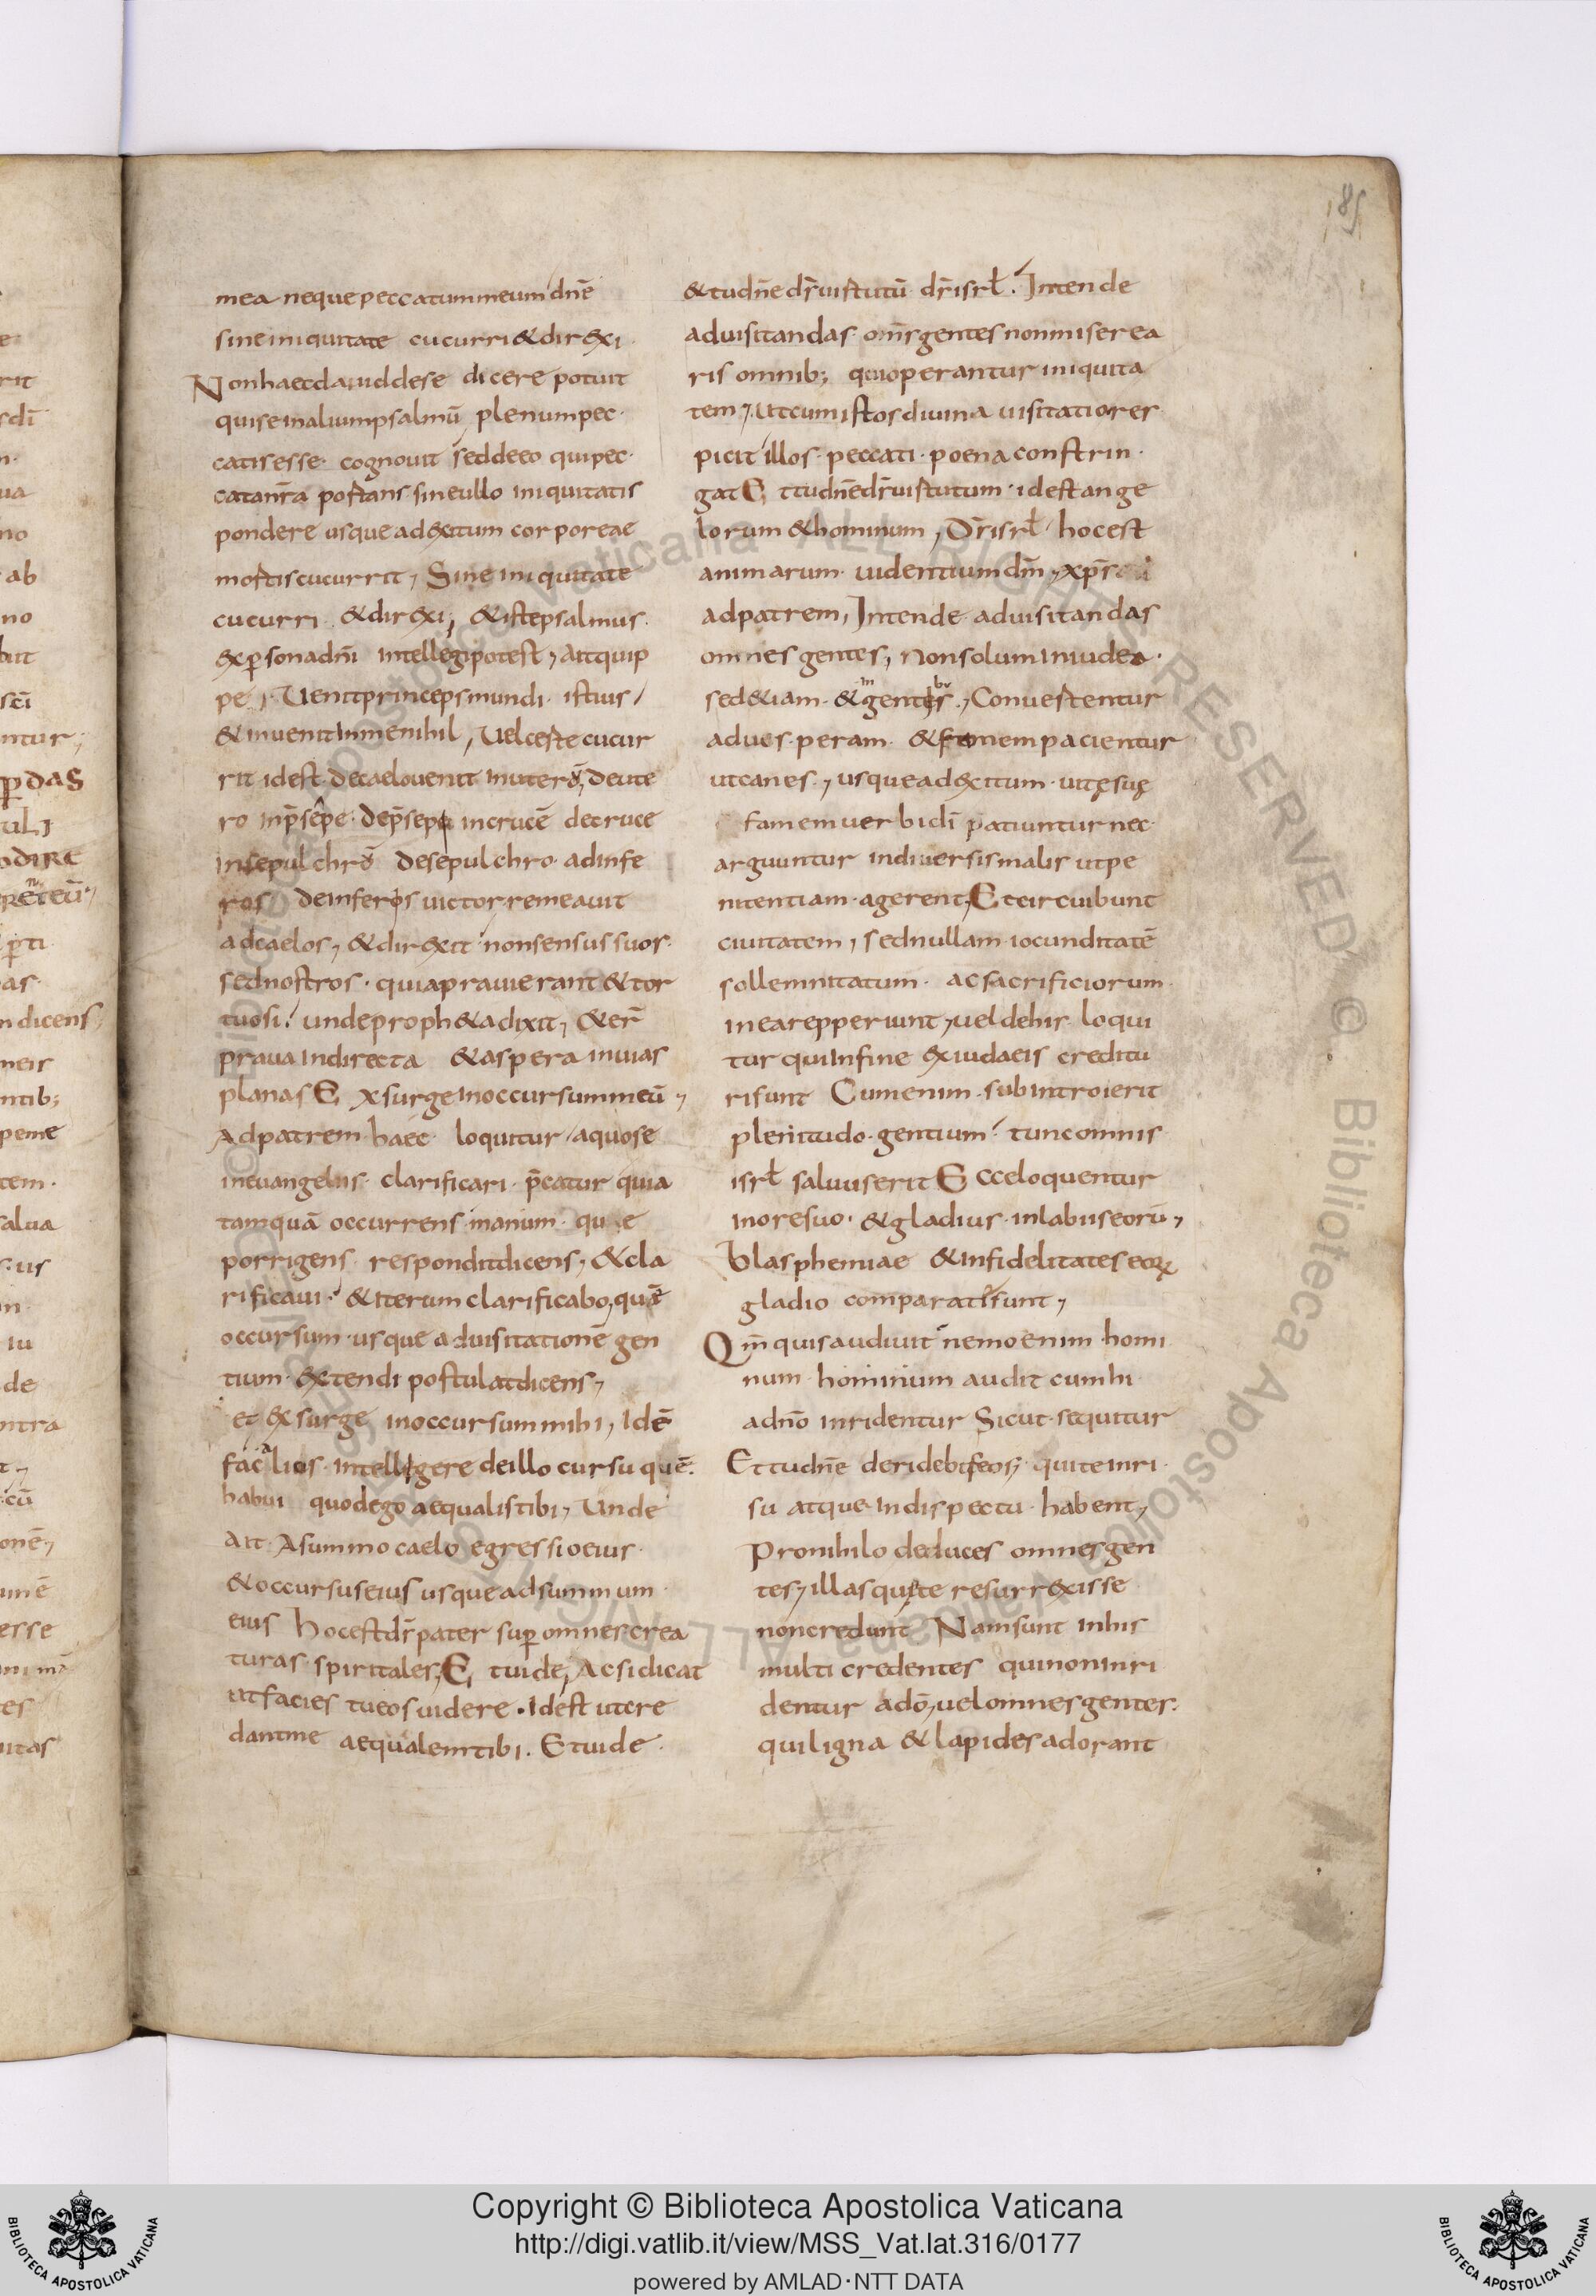 185
mea neque peccatum meum dnē
sine iniquitate cucurri & direxi.
Non haec dauid de se dicere potuit
qui se in alium psalmū plenum pec
catis esse cognouit sed de eo qui pec
cata nr̄a portans sine ullo iniquitatis
pondere usque ad exitum corporeae
mortis cucurrit, Sine iniquitate
cucurri & direxi, & iste psalmus
ex persona dn̄i intellegi potest, ait quip
pe, Uenit princeps mundi istius
& inuenit in me nihil, Uel certe cucur
rit id est de caelo uenit in uterū, de ute
ro in p̄sepe. de p̄sepe in crucē de cruce
in sepulchrū de sepulchro ad infe
ros de inferis uictor remeauit
ad caelos, & direxit non sensus suos
sed nostros quia praui erant & tor
tuosi. unde proph&a dixit, & er̄
praua in directa & aspera in uias
planas Exsurge in occursum meū,
Ad patrem haec loquitur a quo se
in euangeliis clarificari p̄catur quia
tamquā occurrens manum que
porrigens respondit dicens, & cla
rificaui. & iterum clarificabo, quē
occursum usque ad uisitationē gen
tium extendi postulat dicens,
et exsurge in occursum mihi, Idē
fac alios intellegere de illo cursu quē
habui quod ego aequalis tibi, Unde
ait A summo caelo egressio eius
& occursus eius usque ad summum
eius hoc est dr̄ pater sup omnes crea
turas spiritales, Et uide, Ac si dicat
ut facies tu eos uidere. Id est ut cre
dant me aequalem tibi. Et uide
& tu dnē dr̄ uirtutū dr̄ isrl̄. Intende
ad uisitandas omr̄s gentes non miserea
ris omnib; qui operantur iniquita
tem, Ut cum istos diuina uisitatio res
picit illos peccati poena constrin
gat Et tu dnē dr̄ uirtutum id est ange
lorum & hominum, Dr̄ isrl̄ hoc est
animarum uidentium dm̄, xpr̄
ad patrem, Intende ad uisitandas
omnes gentes, non solum in iudea
sed &iam & in gentibus, Conuertentur
ad uesperam & famem pacientur
ut canes, usque ad exitum uitę suę
famem uerbi di patiuntur nec
arguuntur in diuersis malis ut pe
nitentiam agerent, Et circuibunt
ciuitatem, sed nullam iocunditatē
sollemnitatum ac sacrificiorum
in ea repperiunt, uel de his loqui
tur qui in fine ex iudaeis creditu
ri sunt Cum enim subintroierit
plenitudo gentium tunc omnis
isrl̄ saluus erit Ecce loquentur
in ore suo. & gladius in labiis eorū,
blasphemiae & infidelitates eorum
gladio comparati sunt,
Qm̄ quis audiuit nemo enim homi
num hominum audit cum hi
a dn̄o inridentur Sicut sequitur
Et tu dnē deridebis eos, qui te inri
su atque in dispectu habent,
Pro nihilo deduces omnes gen
tes, illas quę te resurrexisse
non credunt Nam sunt in his
multi credentes qui non inri
dentur a dō, uel omnes gentes
qui ligna & lapides adorant
Copyright © Biblioteca Apostolica Vaticana
http://digi.vatlib.it/view/MSS_Vat.lat.316/0177
powered by AMLAD·NTT DATA
BIBLIOTECA APOSTOLICA VATICANA
BIBLIOTECA APOSTOLICA VATICANA